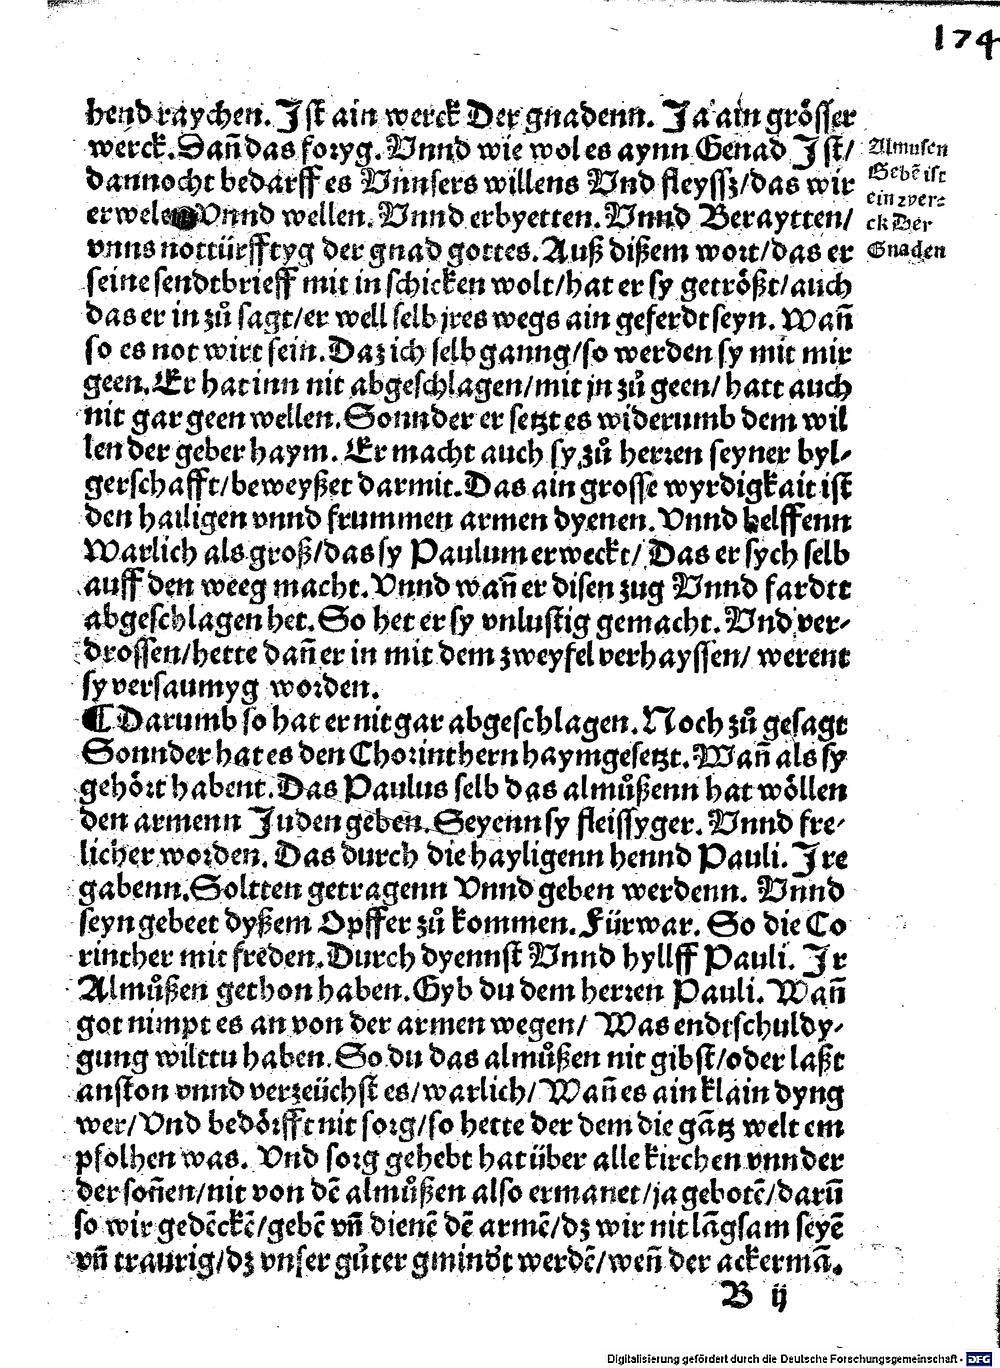 174
hend raychen. Ist ain werck Der gnadenn. Ja ain grösser
werck. Sañ das soryg. Vnnd wie wol es aynn Genad Ist/
dannocht bedarff es Vnnsers willens Vnd fleyssz/das wir
erwelen Vnnd wellen. Vnnd erbyetten. Vnnd Beraytten/
vnns nottürfftyg der gnad gottes. Auß dißem wort/das er
seine sendtbrieff mit in schicken wolt/hat er sy getrößt/auch
das er in zů sagt/er well selb jres wegs ain geferdt seyn. Wañ
so es not wirt sein. Daz ich selb ganng/so werden sy mit mir
geen. Er hat inn nit abgeschlagen/mit jn zů geen/ hatt auch
nit gar geen wellen. Sonnder er setzt es widerumb dem wil
len der geber haym. Er macht auch sy zů herren seyner byl-
gerschafft/beweyßet darmit. Das ain grosse wyrdigkait ist
den hailigen vnnd frummen armen dyenen. Vnnd helffenn
Warlich als groß/das sy Paulum erweckt/ Das er sych selb
auff den weeg macht. Vnnd wañ er disen zug Vnnd fardtt
abgeschlagen het. So het er sy vnlustig gemacht. Vnd ver-
drossen/hette dañ er in mit dem zweyfel verhayssen/ werent
sy versaumyg worden.
¶ Darumb so hat er nit gar abgeschlagen. Noch zů gesagt
Sonnder hat es den Chorinthern haymgesetzt. Wañ als sy
gehört habent. Das Paulus selb das almůßenn hat wöllen
den armenn Juden geben. Seyenn sy fleissyger. Vnnd fre-
licher worden. Das durch die hayligenn hennd Pauli. Ire
gabenn. Soltten getragenn Vnnd geben werdenn. Vnnd
seyn gebeet dyßem Opffer zů kommen. Fürwar. So die Co
rinther mit freden. Durch dyennst Vnnd hyllff Pauli. Ir
Almůßen gethon haben. Gyb du dem herren Pauli. Wañ
got nimpt es an von der armen wegen/ Was endtschuldy-
gung wilttu haben. So du das almůßen nit gibst/oder laßt
anston vnnd verzeüchst es/warlich/ Wañ es ain klain dyng
wer/ Vnd bedörfft nit sorg/so hette der dem die gãtz welt em
pfolhen was. Vnd sorg gehebt hat über alle kirchen vnnder
der soñen/nit von dẽ almůßen also ermanet/ja gebotẽ/darũ
so wir gedẽckẽ/gebẽ vñ dienẽ dẽ armẽ/dz wir nit lãgsam seyẽ
vñ traurig/dz vnser gůter gmindt werdẽ/weñ der ackermã.
B ij
Almusen
Gebẽ ist
ein wer-
ck Der
Gnaden
Digitalisierung gefördert durch die Deutsche Forschungsgemeinschaft - DFG